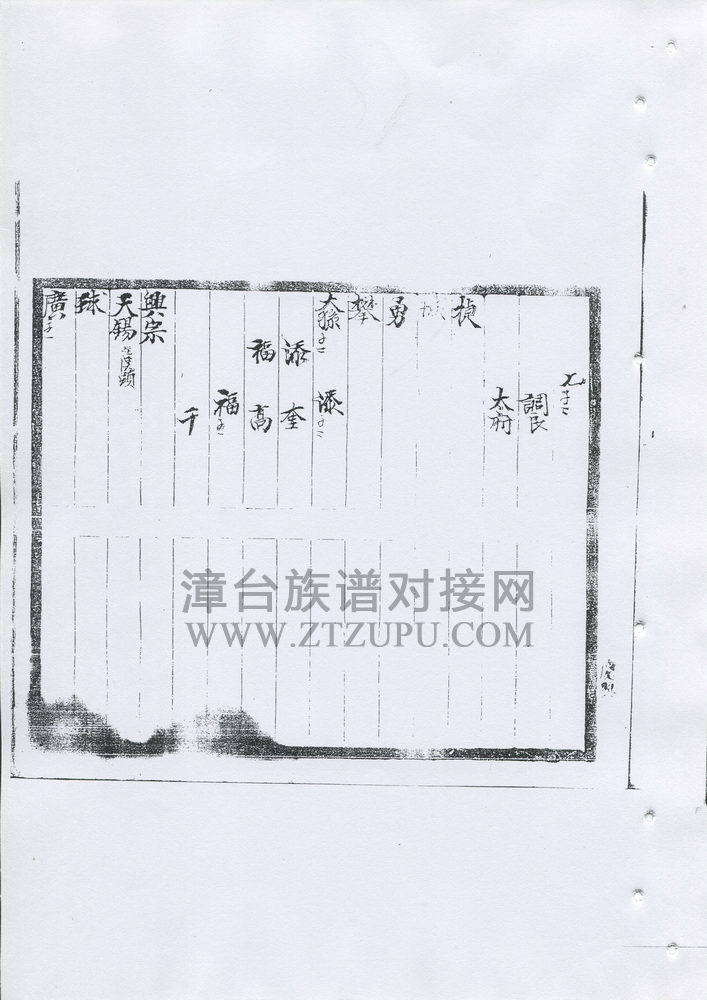 子二
調民
太府
楨
勇
攀
大
添
子二
添
奎
福
高
福
千
興宗
天錫
球
廣
子一
漳台族谱对接网
WWW.ZTZUPU.COM